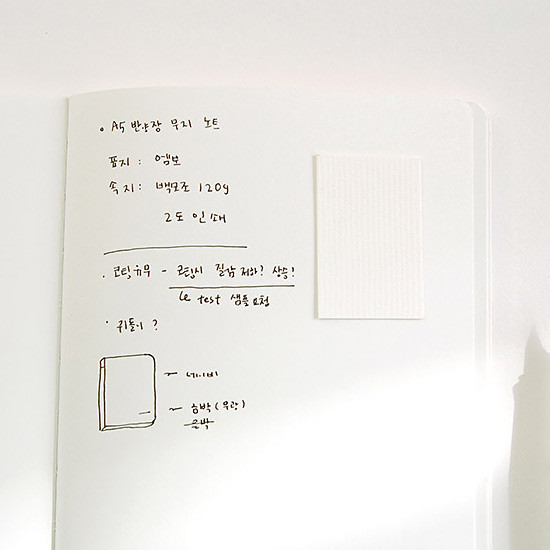 • A5 반양장 무지 노트
표지 : 엠보
속지 : 백모조 120g
2도 인쇄
· 코팅유무 - 코팅시 질감 저하? 상승!
test 샘플요청
· 귀돌이 ?
네이비
송박 (유광)
은박